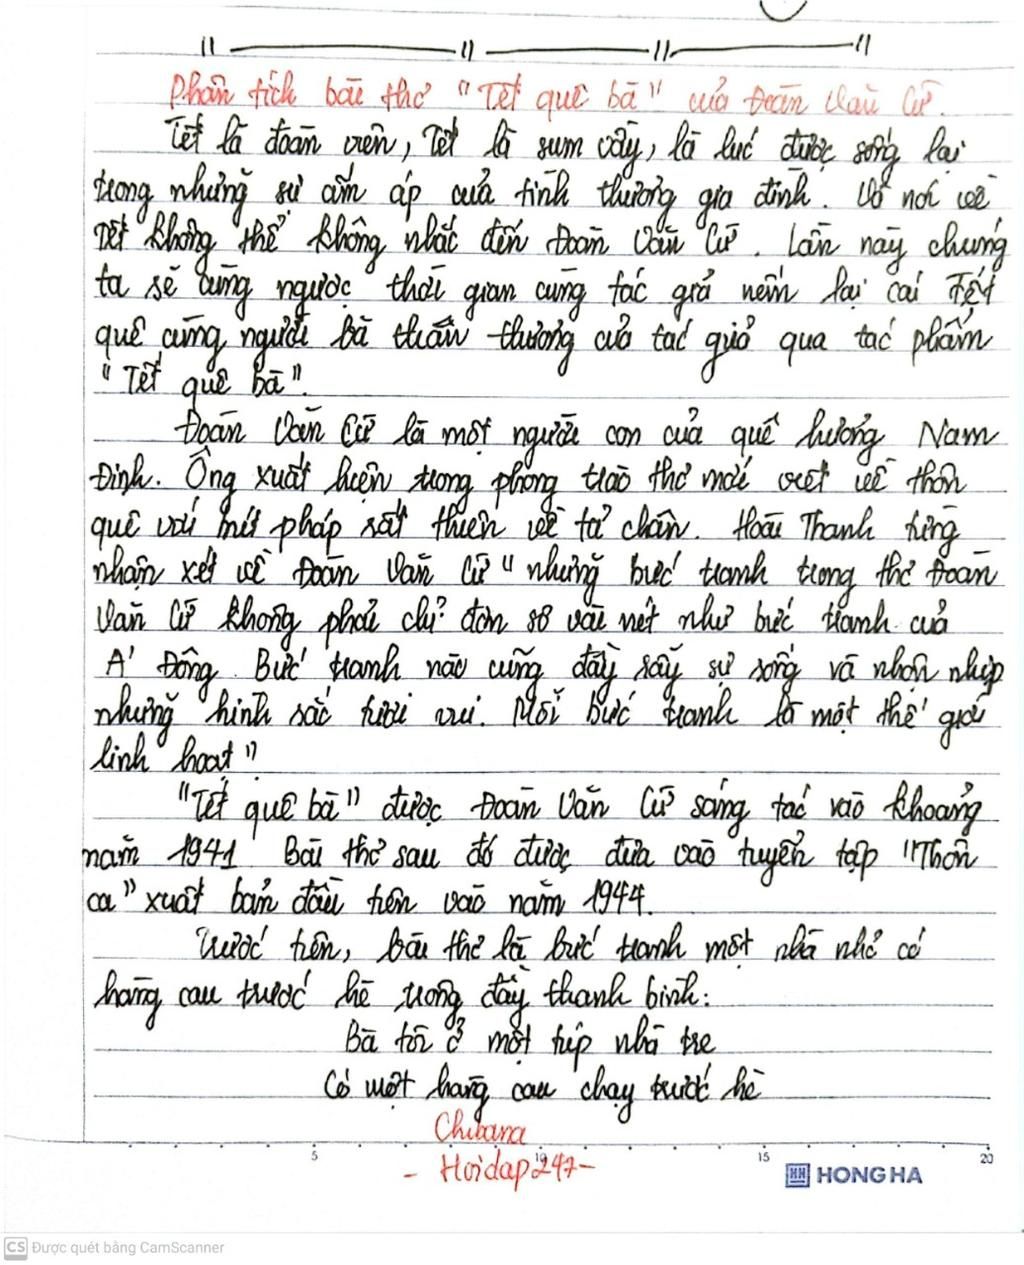 Phân tích bài thơ "Tết quê bà" của Đoàn Văn Cừ.
Tết là đoàn viên, Tết là sum vầy, là lúc được sống lại
trong những sự ấm áp của tình thương gia đình. Và nói về
Tết không thể không nhắc đến Đoàn Văn Cừ. Lần này chúng
ta sẽ cùng ngược thời gian cùng tác giả nếm lại cái Tết
quê cùng người bà thân thương của tác giả qua tác phẩm
"Tết quê bà".
Đoàn Văn Cừ là một người con của quê hương Nam
Định. Ông xuất hiện trong phong trào thơ mới viết về thôn
quê với bút pháp rất thiên về tả chân. Hoài Thanh từng
nhận xét về Đoàn Văn Cừ "những bức tranh trong thơ Đoàn
Văn Cừ không phải chỉ đơn sơ vài nét như bức tranh của
Á Đông. Bức tranh nào cũng đầy rẫy sự sống và nhộn nhịp
những hình sắc tươi vui. Mỗi bức tranh là một thế giới
linh hoạt"
"Tết quê bà" được Đoàn Văn Cừ sáng tác vào khoảng
năm 1941 Bài thơ sau đó được đưa vào tuyển tập "Thôn
ca" xuất bản đầu tiên vào năm 1944.
Trước tiên, bài thơ là bức tranh một nhà nhỏ có
hàng cau trước hè trong đầy thanh bình:
Bà tôi ở một túp nhà tre
Có một hàng cau chạy trước hè
Chibana
- Hoidap247-
5 10 15 20
HH HONG HA
CS Được quét bằng CamScanner